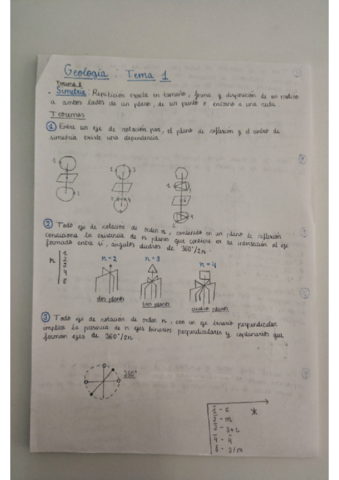 Geología : Tema 1
Simetría: Repetición exacta en tamaño, forma y disposición de un motivo
a ambos lados de un plano, de un punto o entorno a una recta.
Teoremas
① Entre un eje de rotación par, el plano de reflexión y el centro de
simetría existe una dependencia.
② Todo eje de rotación de orden n, contenido en un plano de reflexión
condiciona la existencia de n planos que contiene en su intersección el eje
formado entre sí, ángulos diedros de 360°/2n
n
1
2
3
4
6
n=2
n=3
n=4
dos planos
tres planos
cuatro planos
③ Todo eje de rotación de orden n, con un eje binario perpendicular
implica la presencia de n ejes binarios perpendiculares y coplanarios que
forman ejes de 360°/2n
180°
*